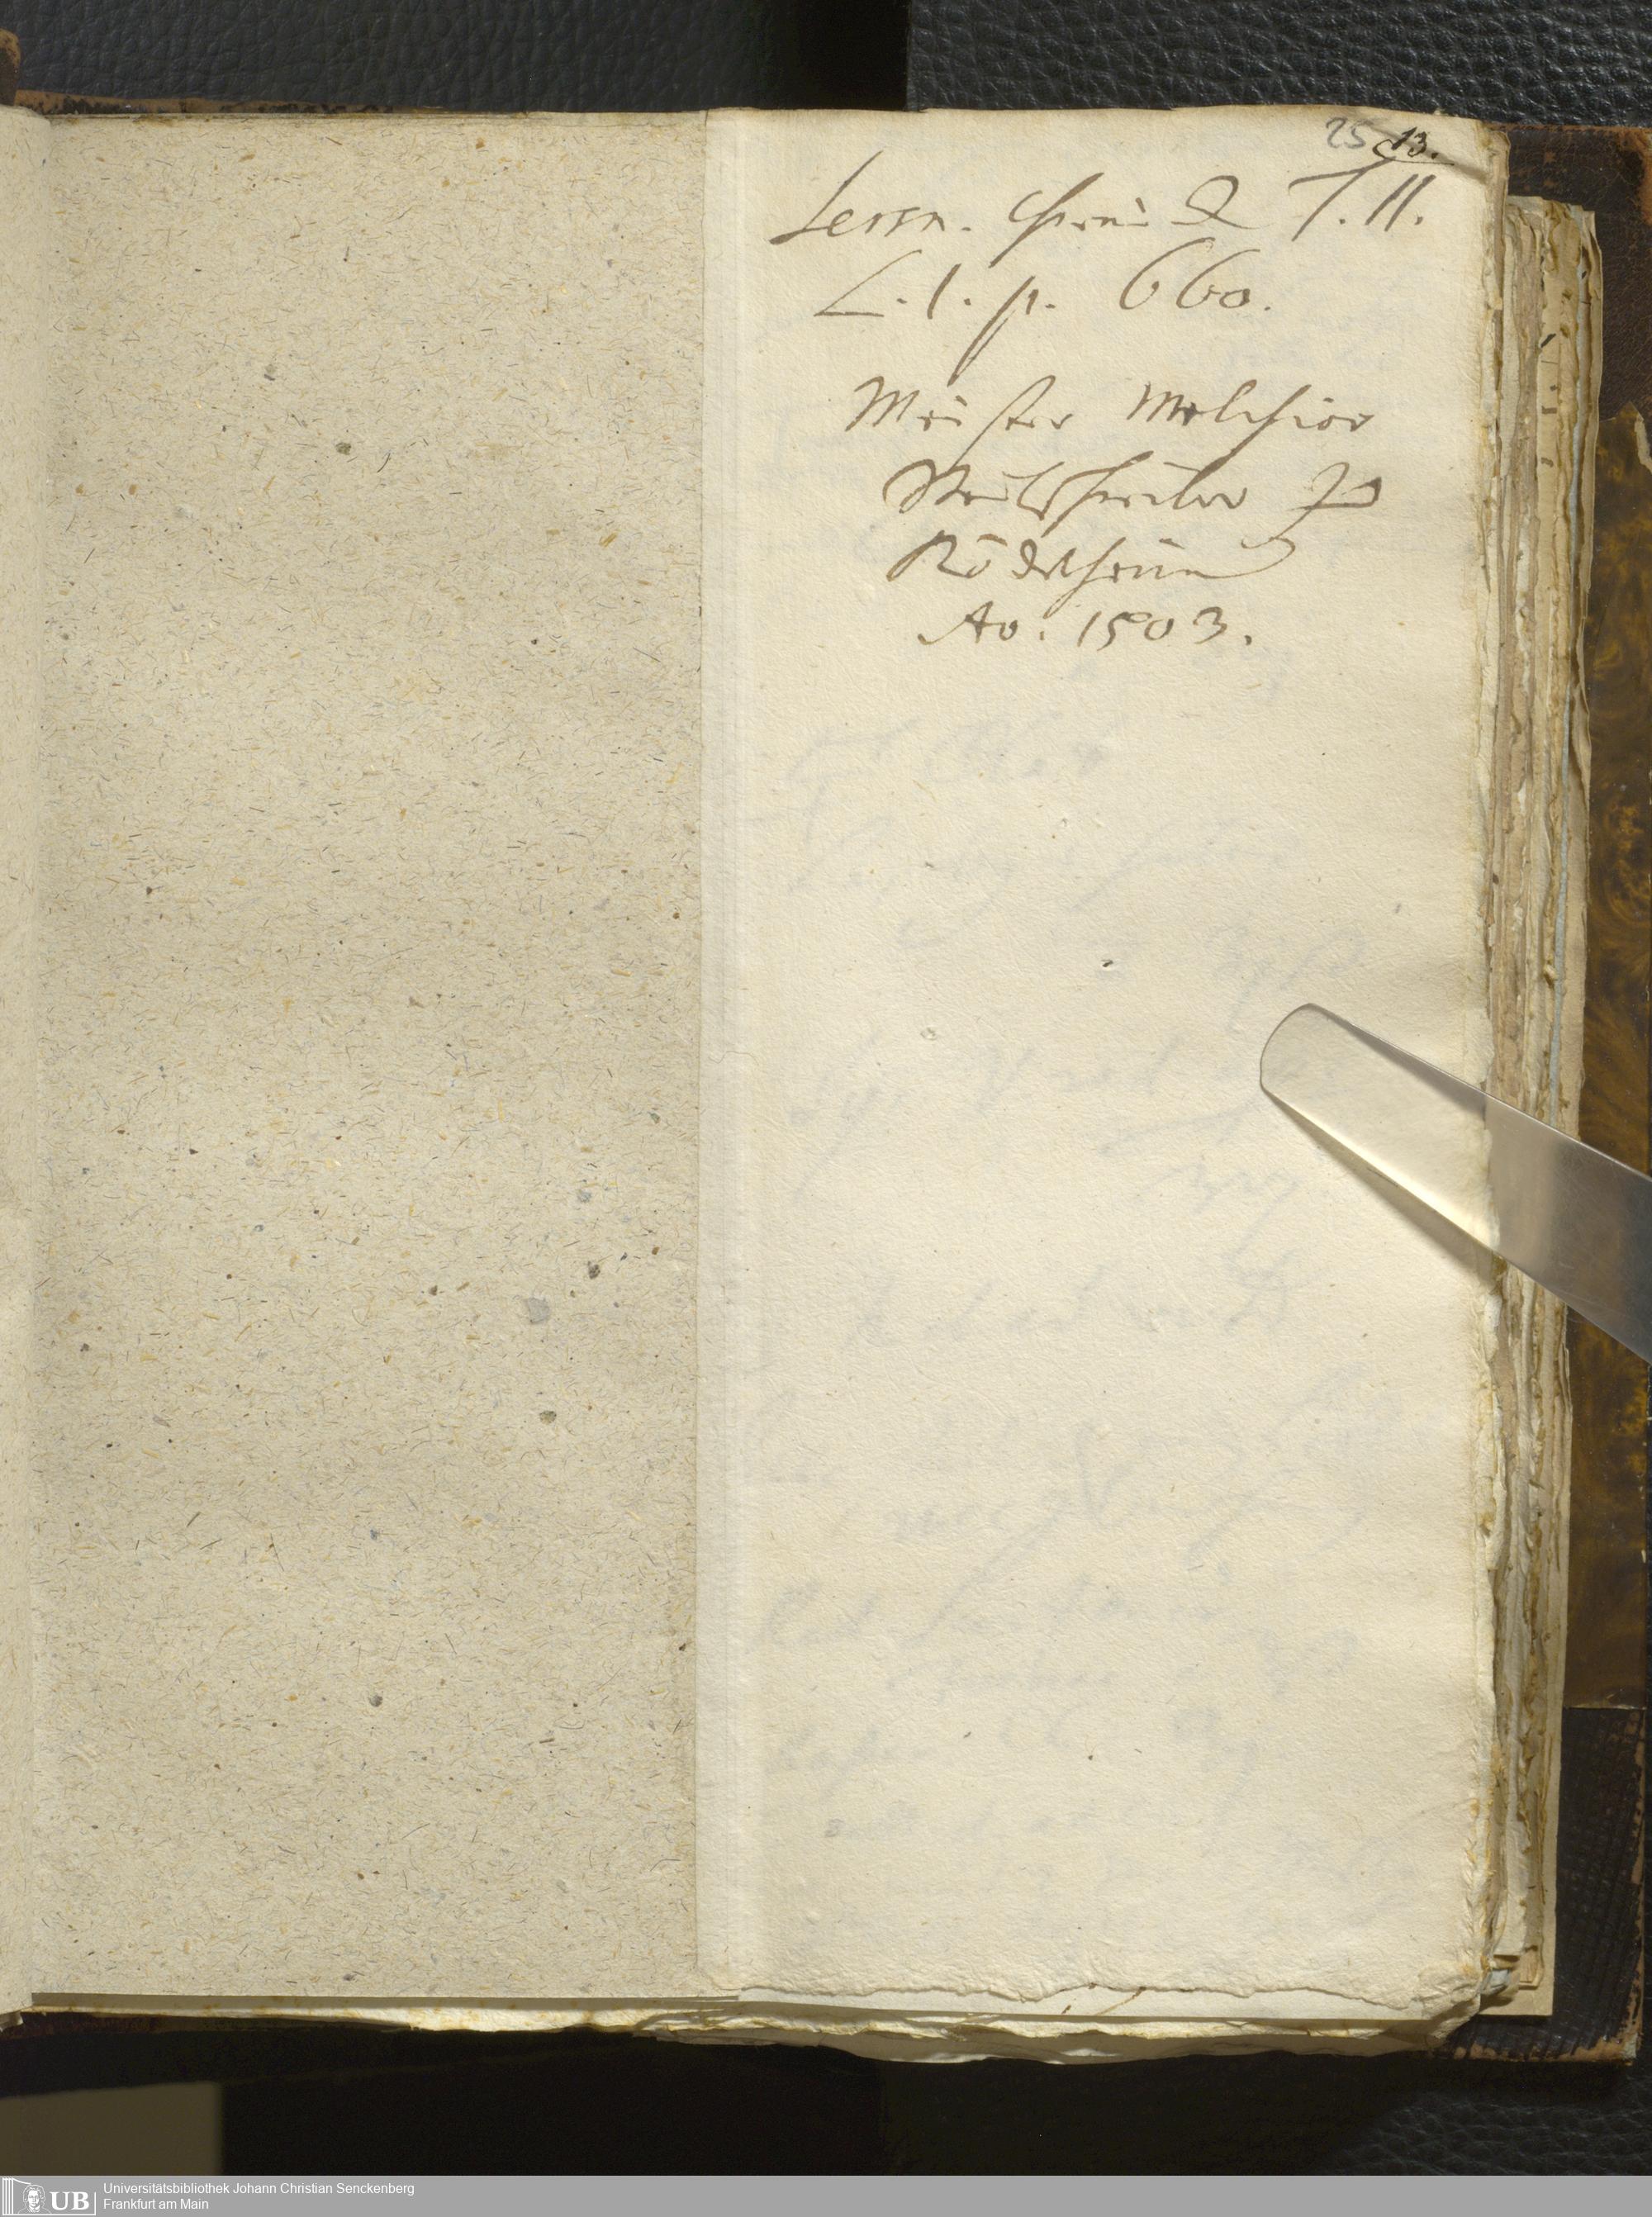 25 13.
Lersn. Chroni T. II.
L. 1. p. 660.
Meister Melchior
zu
Rödelheim
Ao. 1503.
UB Universitätsbibliothek Johann Christian Senckenberg
Frankfurt am Main